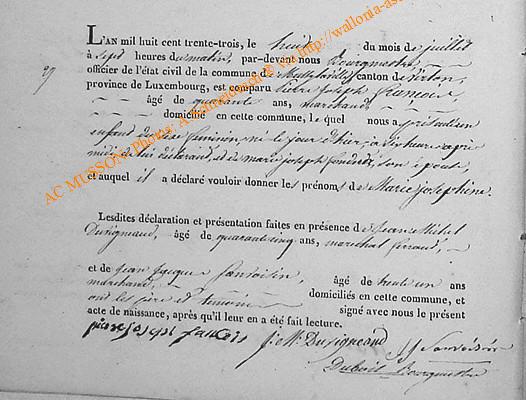 L'AN mil huit cent trente-trois, le huit du mois de juillet
à sept heures du matin, par-devant nous Bourgmestre,
officier de l'état civil de la commune de canton de Virton,
29
province de Luxembourg, est comparu Pierre Joseph François,
âgé de quarante ans, marchand
domicilié en cette commune, lequel nous a présenté un
enfant du sexe féminin, né le jour d'hier, à six heures après
midi, de lui déclarant, et de marie joseph son épouse,
et auquel il a déclaré vouloir donner les prénoms de Marie Josephine.
Lesdites déclaration et présentation faites en présence de Jean Michel
Duvigneaud, âgé de quarante cinq ans, marechal ferrand,
et de Jean Jacques âgé de trente un ans
marchand, domiciliés en cette commune, et
ont les père et témoins signé avec nous le présent
acte de naissance, après qu'il leur en a été fait lecture.
pierre joseph francois J. M. Duvigneaud
Bourgmestre
AC MUSSON Photo: A